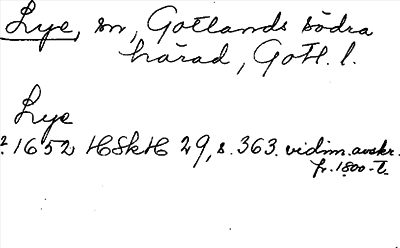 Lye, sn, Gotlands södra
härad, Gotl. l.
Lye
? 1652 HSkH 29, s. 363. vidim. avskr.
fr. 1800-t.